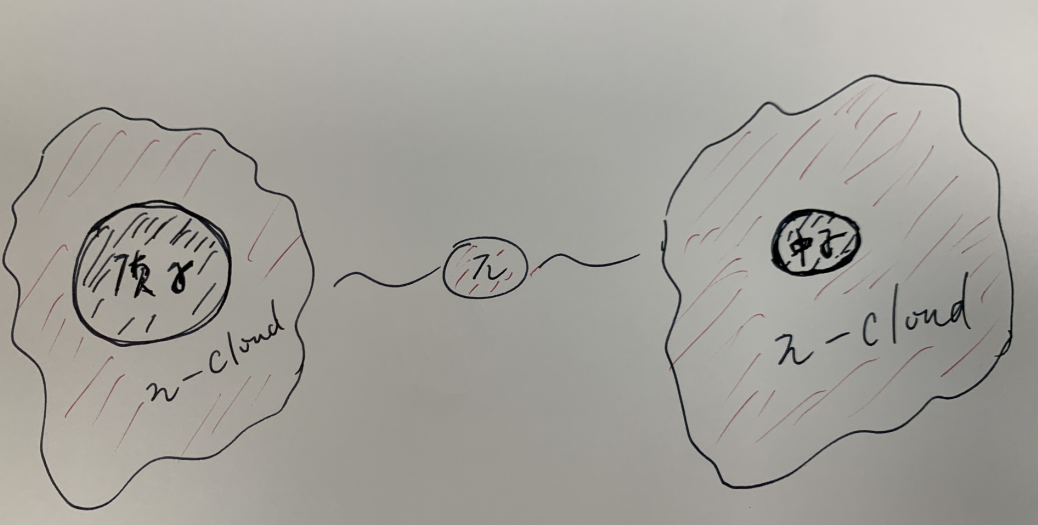 质子
π-cloud
π
中子
π-cloud